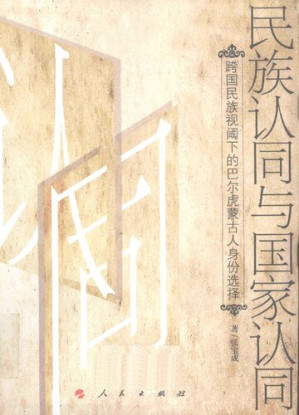 民族认同与国家认同
跨国民族视阈下的巴尔虎蒙古人身份选择
张宝成 著
人民出版社
认同